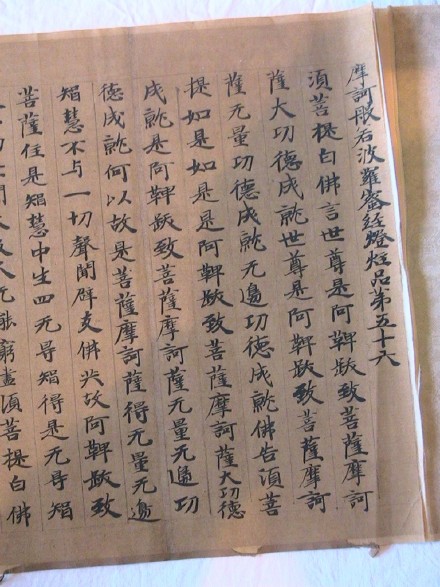 摩訶般若波羅蜜經燈炷品第五十六
須菩提白佛言世尊是阿鞞跋致菩薩摩訶
薩大功德成就世尊是阿鞞跋致菩薩摩訶
薩无量功德成就无邊功德成就佛告須菩
提如是如是是阿鞞跋致菩薩摩訶薩大功德
成就是阿鞞跋致菩薩摩訶薩无量无邊功
德成就何以故是菩薩摩訶薩得无量无邊
智慧不与一切聲聞辟支佛共故阿鞞跋致
菩薩住是智慧中生四无㝵智得是无㝵智
无能窮盡須菩提白佛